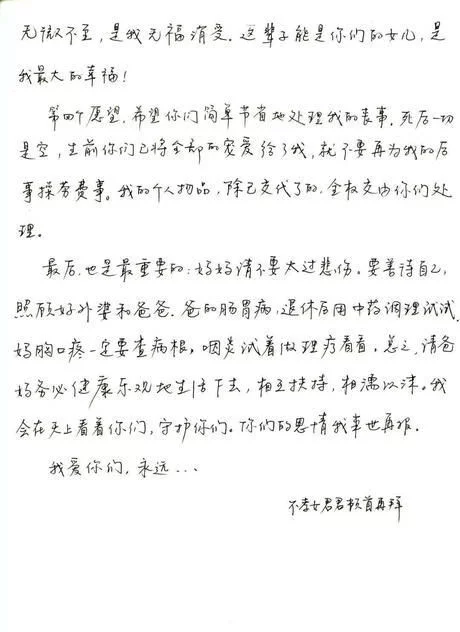 无微不至，是我无福消受。这辈子能是你们的女儿，是
我最大的幸福！
第四个愿望，希望你们简单节省地处理我的丧事。死后一切
是空，生前你们已将全部的家爱给了我，就不要再为我的后
事操劳费事。我的个人物品，除已交代了的，全权交由你们处
理。
最后，也是最重要的：妈妈请不要太过悲伤。要善待自己，
照顾好外婆和爸爸。爸的肠胃病，退休后用中药调理试试，
妈胸口疼一定要查病根，咽炎试着做理疗看看，总之，请爸
妈务必健康乐观地生活下去，相互扶持，相濡以沫。我
会在天上看着你们，守护你们。你们的恩情我来世再报。
我爱你们，永远...
不孝女君君顿首再拜